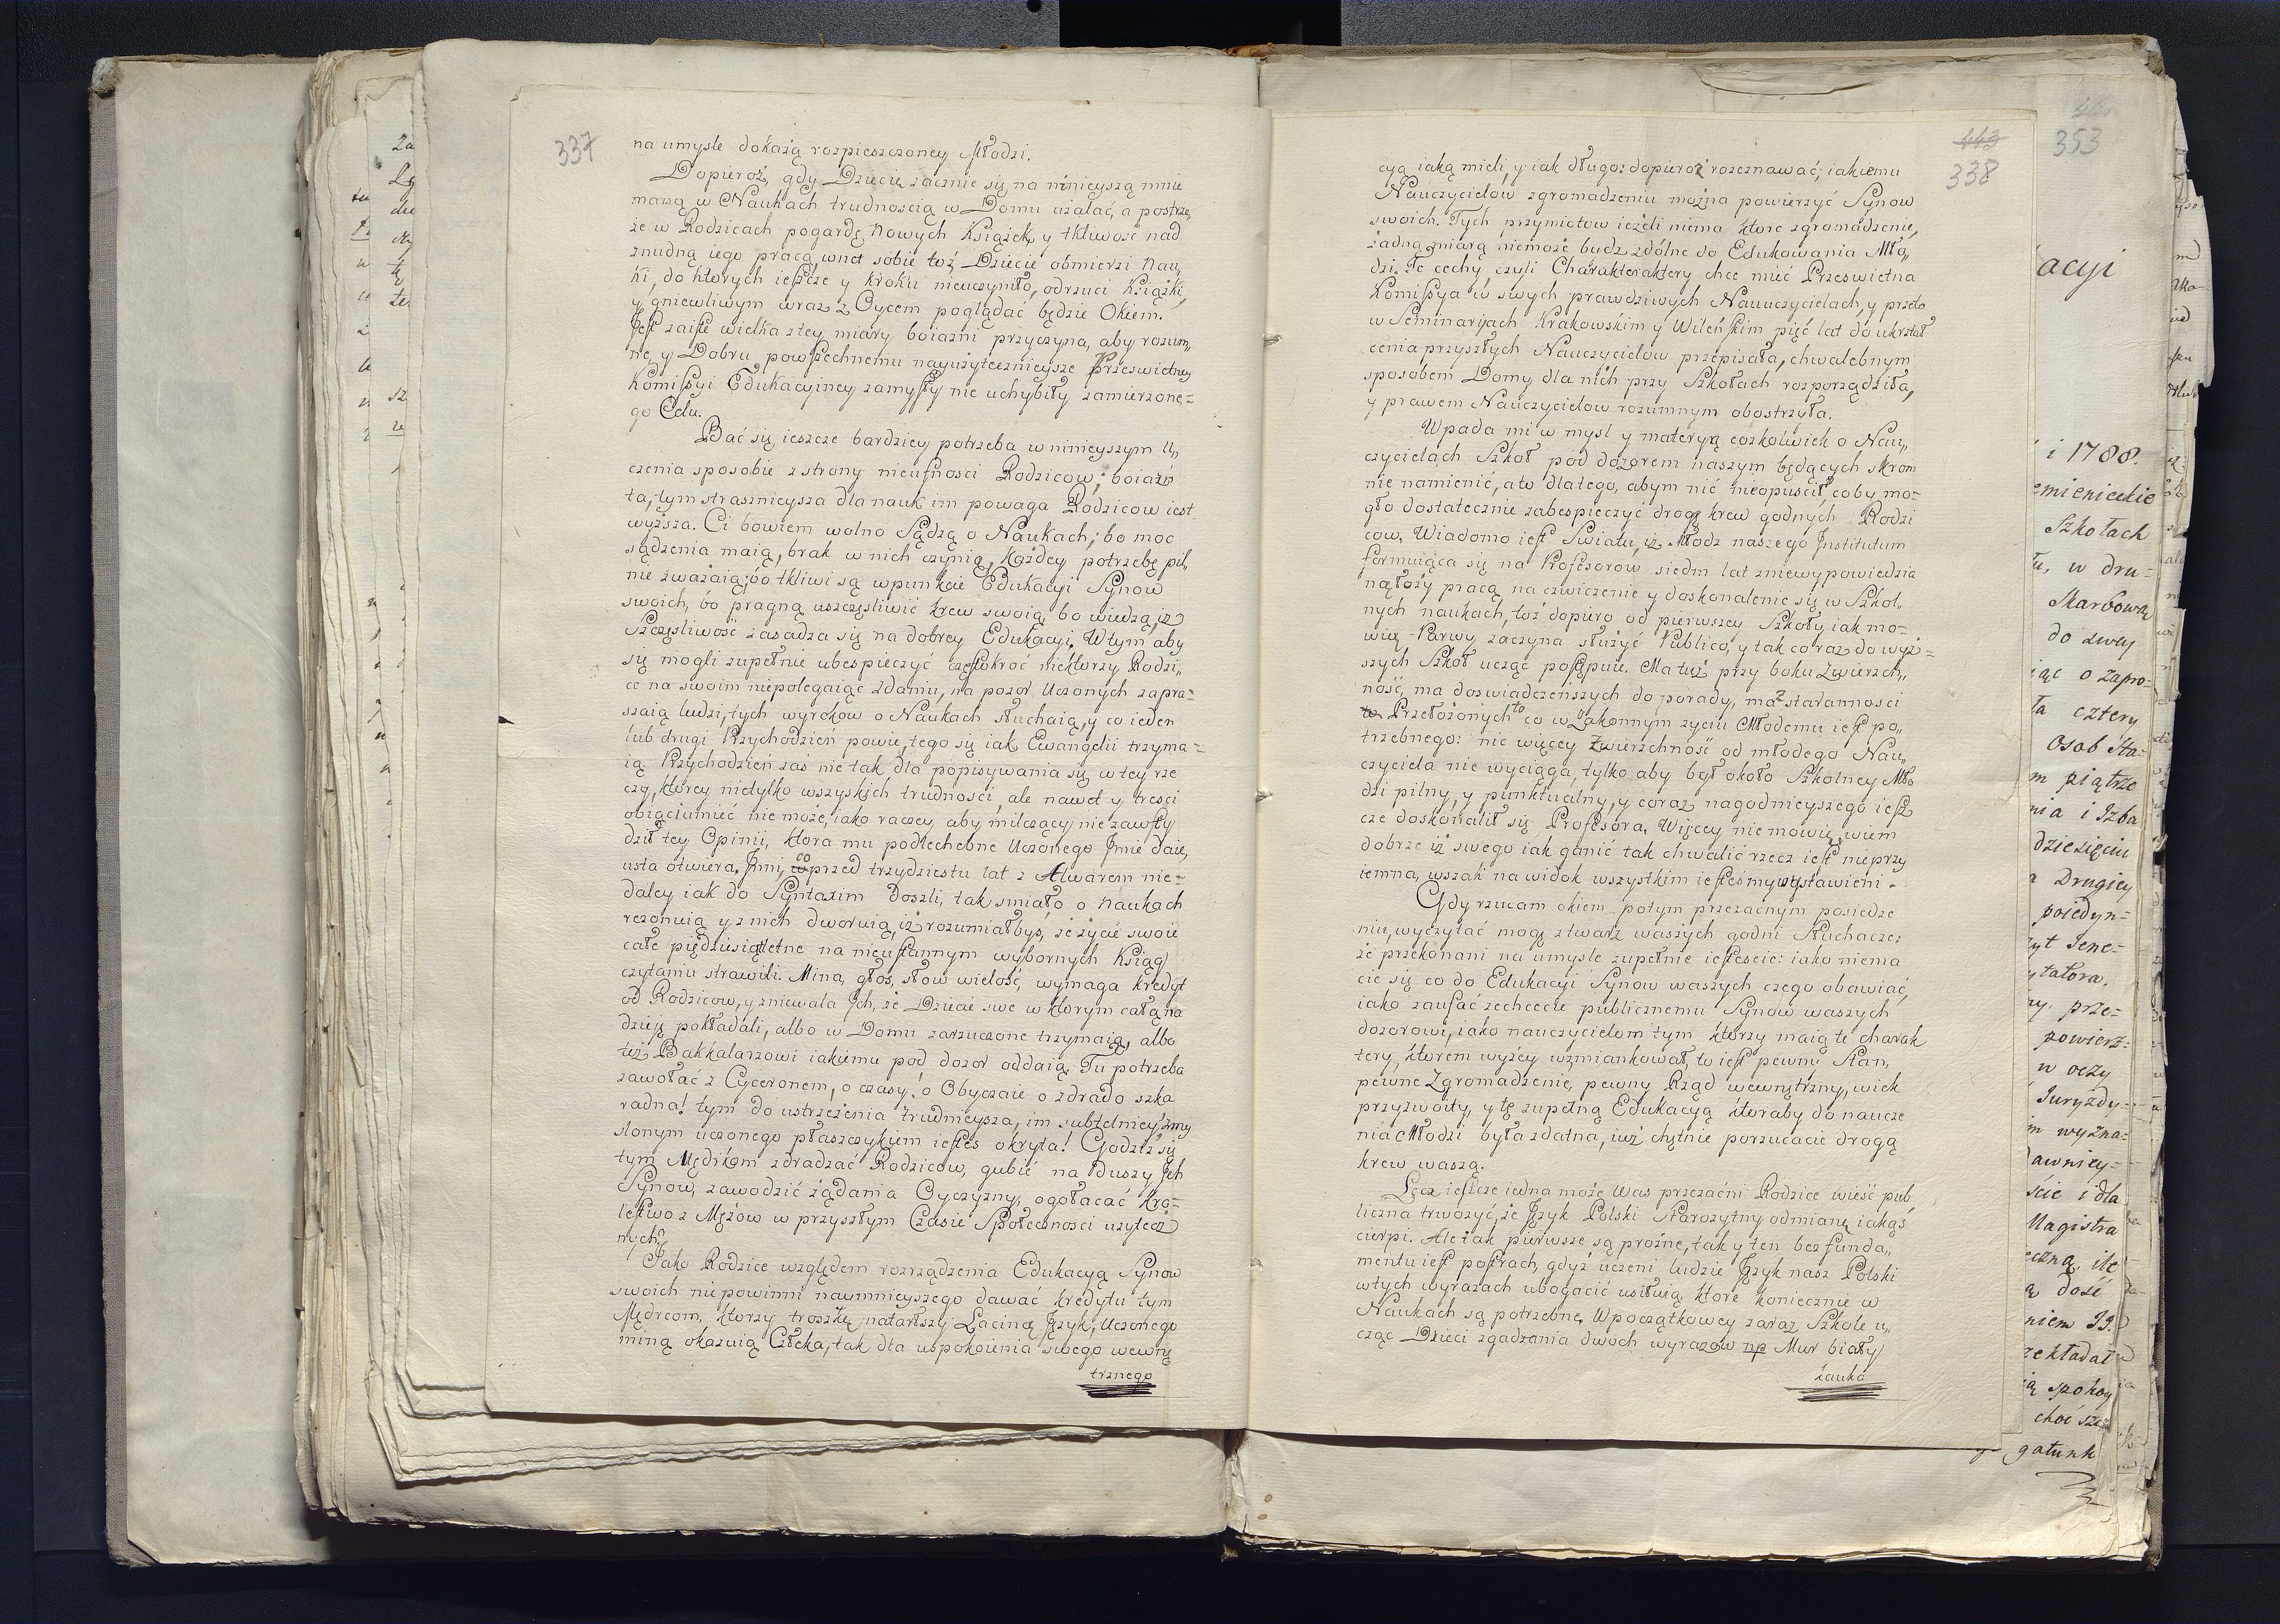 337
na umysle dokażą rozpieszczoney Młodzi.
Dopieroż, gdy Dziecie zacznie się na ninieyszą mnie
maną w Naukach trudnoscią w Domu użalać, a postrze„
że w Rodzicach pogardę Nowych Książek y tkliwość nad
żmudną iego pracą, wnet sobie toż Dziecie obmierzi Nau„
ki, do ktorych ieszcze y kroku nieuczyniło, odrzuci Książki,
y gniewliwym wraz z Oycem poglądać będzie Okiem.
Jest zaiste wielka ztey miary boiazni przyczyna, aby rozum„
ne, y Dobru powszechnemu nayużytecznieysze Przeswietney
Komissyi Edukacyiney zamysły nie uchybiły zamierzone=
go Celu.
Bać się ieszcze bardziey potrzeba w ninieyszym U„
czenia sposobie z strony nieufnosci Rodzicow; boiaźń
ta, tym strasznieysza dla nauk im powaga Rodzicow iest
wyższa. Ci bowiem wolno Sądzą o Naukach; bo moc
sądzenia maią, brak w nich czynią, Każdey potrzebę pil„
nie zważaią; bo tkliwi są w punkcie Edukacyi Synow
swoich, bo pragną uszczęsliwić krew swoią, bo wiedzą, iż
Szczęsliwość zasadza się na dobrey Edukacyi. W tym aby
się mogli zupełnie ubespieczyć częstokroć niektorzy Rodzi„
ce na swoim niepolegaiąc zdaniu, na pozor Uczonych zapra=
szaią ludzi, tych wyrokow o Naukach słuchaią, y co ieden
lub drugi Przychodzień powie, tego się iak Ewangelii trzyma=
ią. Przychodzień zas nie tak dla popisywania się w tey rze
czy, ktorey nietylko wszyskich trudnosci, ale nawet y tresci
obiąć umieć nie może, iako raczey, aby milczący nie zawsty
dził tey Opinii, ktora mu podlechebne Uczonego Jmie daie,
usta otwiera. Jnni, co przed trzydziestu lat z Alwarem nie=
daley iak do Syntaxim doszli, tak smiało o Naukach
rezonuią y z nich dworuią, iż rozumiałbys, że życie swoie
całe piędziesiątletne na nieustannym wybornych Ksiąg
czytaniu strawili. Mina, głos, słow wielość, wymaga kredyt
od Rodzicow, y zniewala Jch, że Dziecie swe w ktorym całą na
dzieję pokładali, albo w Domu zarzucone trzymaią, albo
też Bakkalarzowi iakiemu pod dozor oddaią. Tu potrzeba
zawołać z Cyceronem, o czasy! o Obyczaie o zdrado szka
radna! tym do ustrzeżenia trudnieysza, im subtelniey zmy
slonym uczonego płaszczykiem iestes okryta! Godziż się
tym Mędrkom zdradzać Rodzicow, gubić na Duszy Jch
Synow, zawodzić żądania Oyczyzny, ogołacać Kro=
lestwo z Mężow w przyszłym Czasie Społecznosci użytecz
nych?
Jako Rodzice względem rozrządzenia Edukacyą Synow
swoich niepowinni naymnieyszego dawać kredytu tym
Mędrcom, ktorzy troszkę natarłszy Łaciną Język, Uczonego
miną okazuią Człeka, tak dla uspokoienia swego wewnę
trznego
443
338
353
cyą iaką mieli, y iak długo: dopieroż rozeznawać, iakiemu
Nauczycielow zgromadzeniu można powierzyć Synow
swoich. Tych przymiotow ieżeli niema ktore zgromadzenie,
żadną miarą niemoże budz zdólne do Edukowania Mło„
dzi. Te cechy czyli Charakteraktery chce mieć Przeswietna
Komissya w swych prawdziwych Nauuczycielach, y przeto
w Seminaryach Krakowskim y Wileńskim pięć lat do ukształ
cenia przyszłych Nauczycielow przepisała, chwalebnym
sposobem Domy dla nich przy Szkołach rozporządziła,
y prawem Nauczycielow rozumnym obostrzyła.
Wpada mi w mysl y materyą cozkolwiek o Nau„
czycielach Szkoł pod dozorem naszym będących skrom
nie namienić, a to dlatego, abym nic nieopuscił, coby mo=
gło dostatecznie zabespieczyć drogę krew godnych Rodzi
cow. Wiadomo iest Swiatu, iż Młodz naszego Jnstitutum
formuiąca się na Profesorow siedm lat zniewypowiedzia
ną łoży pracą na cwiczenie y doskonalenie się w Szkol„
nych naukach, toż dopiero od pierwszey Szkoły, iak mo=
wię Parwy zaczyna służyć Publico, y tak coraz do wyż=
szych Szkoł ucząc postępuie. Ma tuż przy boku Zwierzch„
ność, ma doswiadczeńszych do porady, ma z starannosci
Przełożonych to co w Zakonnym życiu Młodemu iest po„
trzebnego: nic więcey Zwierzchność od młodego Nau„
czyciela nie wyciąga, tylko aby był około Szkolney Mło
dzi pilny, y punktualny, y coraz nagodnieyszego iesz
cze doskonalił się Profesora. Więcey nie mowię, wiem
dobrze iż swego iak ganić tak chwalić rzecz iest nieprzy
iemna, wszak na widok wszystkim iestesmy wystawieni.
Gdy rzucam okiem po tym przezacnym posiedze
niu, wyczytać mogę z twarz waszych godni Słuchacze
że przekonani na umysle zupełnie iestescie: iako niema
cie się co do Edukacyi Synow waszych czego obawiać,
iako zaufać zechcecie publicznemu Synow waszych
dozorowi, iako nauczycielom tym ktorzy maią te charak
tery, ktorem wyżey wzmiankował, to iest pewny Stan,
pewne Zgromadzenie, pewny Rząd wewnętrzny, wiek
przyzwoity, y tę zupełną Edukacyą ktoraby do naucze
nia Młodzi była zdatna, iuż chętnie porzucacie drogą
krew waszą.
Lecz ieszcze iedna może Was przezacni Rodzice wieść pub
liczna trwożyć, że Język Polski Starożytny odmianę iakąś
cierpi. Ale iak pierwsze są prożne, tak y ten bez funda„
mentu iest postrach, gdyż uczeni ludzie Język nasz Polski
w tych wyrazach ubogacić usiłuią, ktore koniecznie w
Naukach są potrzebne. Wpoczątkowey zaraz Szkole u„
cząc Dzieci zgadzania dwoch wyrazow np Mur biały
łauka
acyi
i 1788.
emienieckie
Szkołach
u, w dru=
Skarbową
do zwey
iąc o zapro=
ła cztery
Osob Sta=
m piątrze
nia i Izba
dziesięciu
a Drugiey
poiedyn=
yt Jene=
ytatora.
ny. prze=
powierz=
w oczy
Juryzdy=
m wyzna=
awniey=
ście i dla
Magistra
eczną, ile
ą dość
niem
zekładał
ią spokoy
choć sze
gatunk